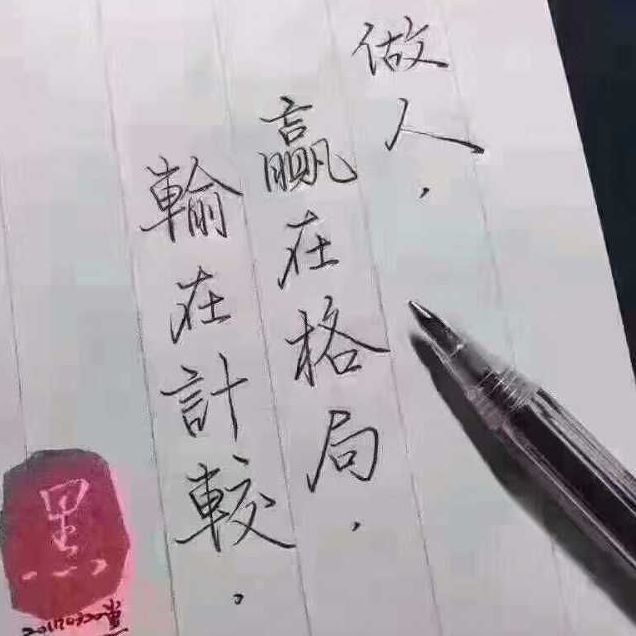 做人，
贏在格局，
輸在計較。
黑